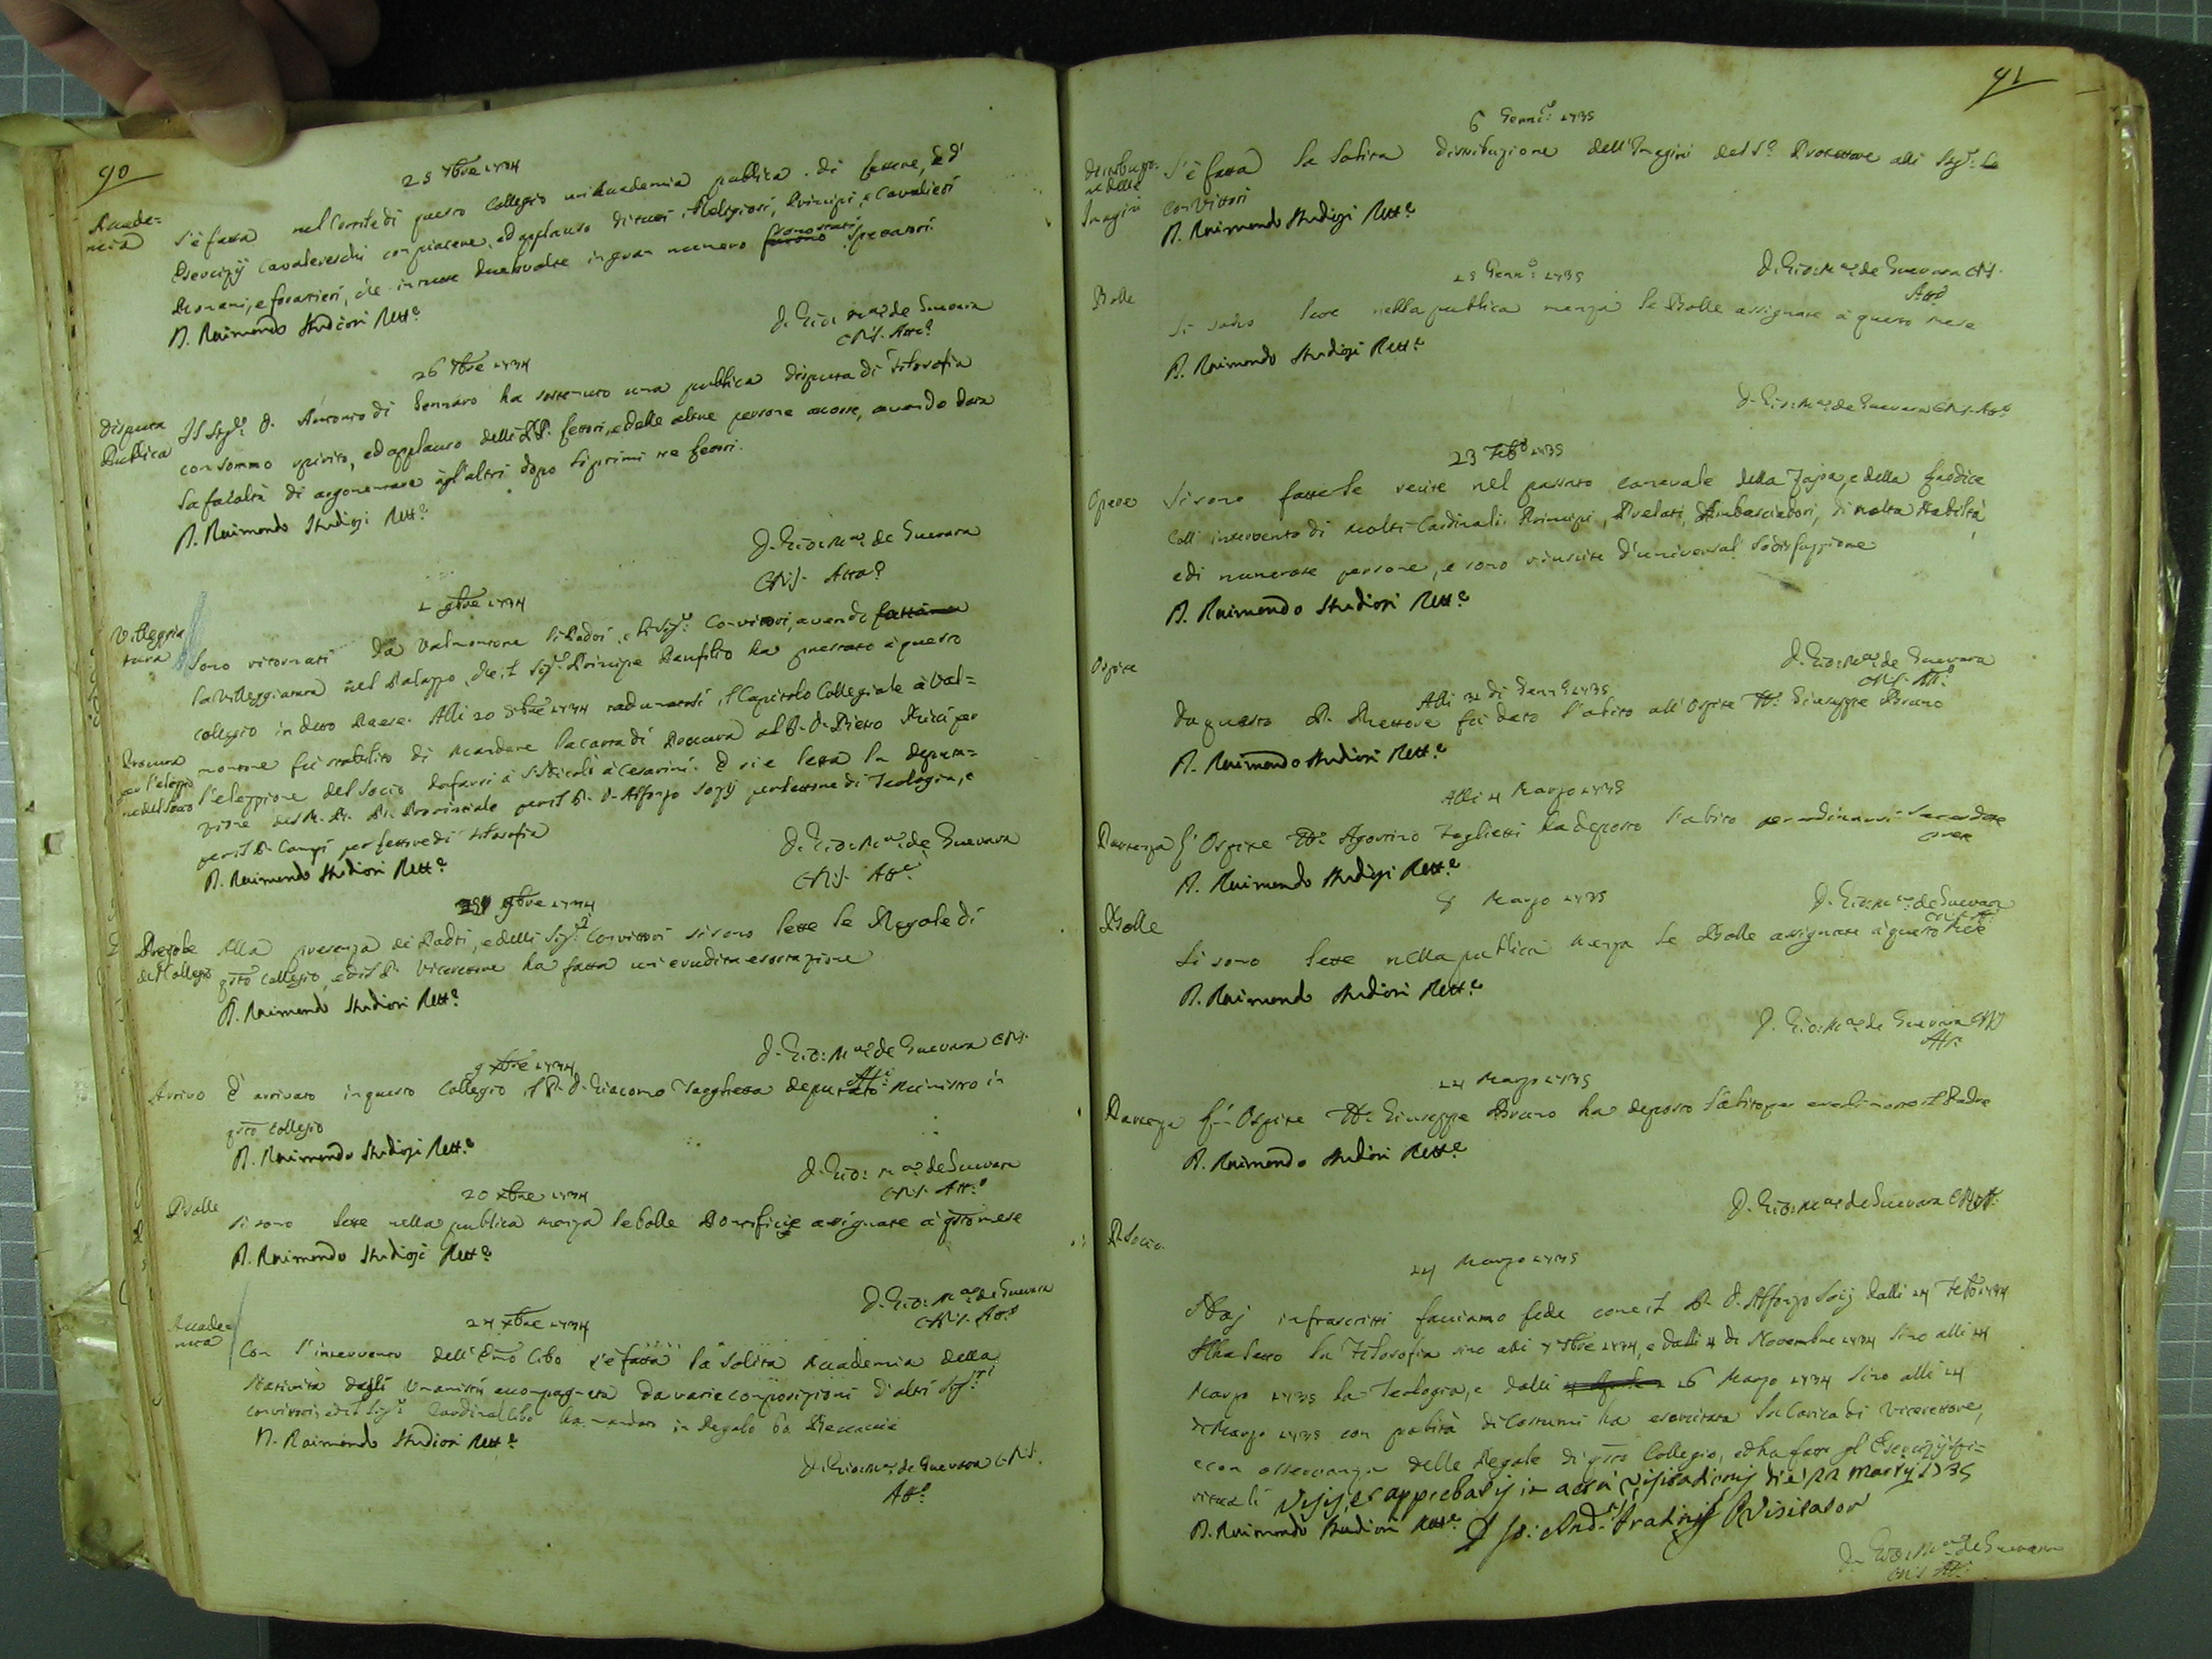 90
25 7bre 1734
Accade=
mia
S'è fatta nel Cortile di questo Collegio un'Accademia publica di lettere, e d'
Esercizij Cavalereschi con piacere, ed applauso di tutti i Religiosi, Principi, e Cavalieri
Romani, e forastieri, che in tutte due le volte in gran numero furono sono stati spettatori.
D. Raimondo Studiosi Rett.e
D. Gio: M.a de Guevara
CRS. Att.o
26 7bre 1734
Disputa
Publica
Il Sig.r D. Antonio di Gennaro ha sostenuto una publica disputa di Filosofia
con sommo spirito, ed applauso delli PP. lettori, e delle altre persone accorse, avendo data
la facoltà di argomentare agl'altri dopo li primi tre lettori.
D. Raimondo Studiosi Rett.e
D. Gio: M.a de Guevara
CRS. Att.o
1 9bre 1734
Villeggia
tura
Sono ritornati da Valmontone li Padri, e li Sig.ri Convittori, avendo
la Villeggiatura nel Palazzo, che il Sig.r Principe Panfilio ha prestato à questo
Collegio in detto Paese. Alli 20 8bre 1734 radunatosi il Capitolo Collegiale à Val=
Procura
per l'elezio
ne del Socio
montone fù stabilito di mandare la carta di Procura al P. D. Pietro per
l'elezzione del Socio da farsi à S. Nicolò à Cesarini. E si è letta la deputa=
zione del M. R. P. Provinciale per il P. D. Alfonzo Sogij per lettore di Teologia, e
per il P. Campi per lettore di Filosofia
D. Raimondo Studiosi Rett.e
D. Gio: M.a de Guevara
CRS. Att.o
9bre 1734
Regole
del Collegio
Alla presenza de Padri, e delli Sig.ri Convittori si sono lette le Regole di
q̃sto Collegio, ed il P. Vicerettore ha fatta un'erudita esortazione
D. Raimondo Studiosi Rett.e
D. Gio: M.a de Guevara CRS.
Att.o
9 xbre 1734
Arrivo
È arrivato in questo Collegio il P. D. Giacomo Vagghetta deputato Ministro in
q̃sto Collegio
D. Raimondo Studiosi Rett.e
D. Gio: M.a de Guevara
CRS. Att.o
20 xbre 1734
Bolle
Si sono lette nella publica mensa le bolle Pontificie assignate à q̃sto mese
D. Raimondo Studiosi Rett.e
D. Gio: M.a de Guevara
CRS. Att.o
24 xbre 1734
Accade=
mia
Con l'intervento dell'Em̃o Cibo s'è fatta la solita Accademia della
Natività dagli Umanisti accompagnata da varie composizioni d'altri Sig.ri
Convittori, ed il Sig.r Cardinal Cibo ha mandato in Regalo
D. Raimondo Studiosi Rett.e
D. Gio: M.a de Guevara CRS.
Att.o
91
6 Genn.o 1735
Distribuzio=
ne delle
Imagini
S'è fatta la solita distribuzione dell'Imagini del S.o Protettore alli Sig.ri
Convittori
D. Raimondo Studiosi Rett.e
D. Gio: M.a de Guevara CRS.
Att.o
25 Genn.o 1735
Bolle
Si sono lette nella publica mensa le Bolle assignate à questo mese
D. Raimondo Studiosi Rett.e
D. Gio: M.a de Guevara CRS. Att.o
23 Feb.o 1735
Opere
Si sono fatte le recite nel passato carnevale della Zaira, e della Laodice
coll'intervento di molti Cardinali, Principi, Prelati, Ambasciatori, di molta Nobiltà,
e di numerose persone, e sono riuscite d'universal sodisfazzione
D. Raimondo Studiosi Rett.e
D. Gio: M.a de Guevara
CRS. Att.o
Alli 31 di Genn.o 1735
Ospite
Da questo P. Rettore fù dato l'abito all'Ospite Fr. Giuseppe Bruno
D. Raimondo Studiosi Rett.e
Alli 4 Marzo 1735
Partenza
L'Ospite Fr. Agostino Faglietti ha deposto l'abito per ordinarsi Sacerdote
D. Raimondo Studiosi Rett.e
D. Gio: M.a de Guevara
CRS. Att.o
8 Marzo 1735
Bolle
Si sono lette nella publica mensa le Bolle assignate à questo mese
D. Raimondo Studiosi Rett.e
D. Gio: M.a de Guevara CRS
Att.o
14 Marzo 1735
Partenza
L'Ospite Fr. Giuseppe Bruno ha deposto l'abito per il Padre
D. Raimondo Studiosi Rett.e
D. Gio: M.a de Guevara CRS Att.
14 Marzo 1735
P. Socio
Noi infrascritti facciamo fede come il P. D. Alfonzo Sogij dalli 14 Feb.o 1734
ha letto la Filosofia sino alli 7 7bre 1734, e dalli 4 di Novembre 1734 sino alli 14
Marzo 1735 la Teologia, e dalli 26 Marzo 1734 sino alli 14
di Marzo 1735 con probità di Costumi ha esercitata la Carica di Vicerettore,
e con osservanza delle Regole di q̃sto Collegio, ed ha fatti gl'Esercizij spi=
rituali Visis, et approbatis in actu visitationis die 22 Martij 1735
D. Raimondo Studiosi Rett.e Visitator
D. Gio: M.a de Guevara
CRS Att.o